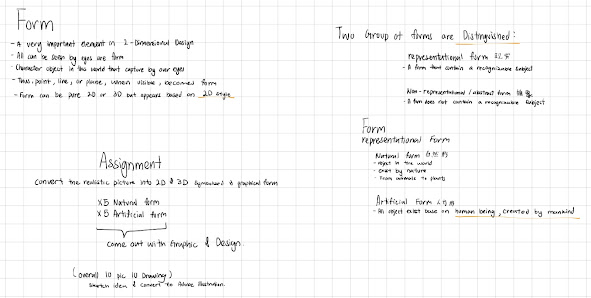 Form
- A very important element in 2-Dimensional Design
- All can be seen by eyes are form
- Character object in the world that capture by our eyes
- Thus, point, line, or plane, when visible, becomes form
- Form can be pure 2D or 3D but appears based on 2D style
Assignment
Convert the realistic picture into 2D & 3D symbolised & graphical form
x5 Natural form
x5 Artificial form
Come out with Graphic & Design.
(overall 10 pic 10 Drawing)
Sketch idea & convert to Adobe Illustration.
Two Group of forms are Distinguished:
representational form
- A form that contain a recognizable subject
Non-representational / abstract form 抽象
- A form does not contain a recognizable subject
Form
representational Form
Natural form 自然的
- object in the world
- exist by nature
- From animals to plants
Artificial Form 人为的
- An object exist base on human being, created by mankind